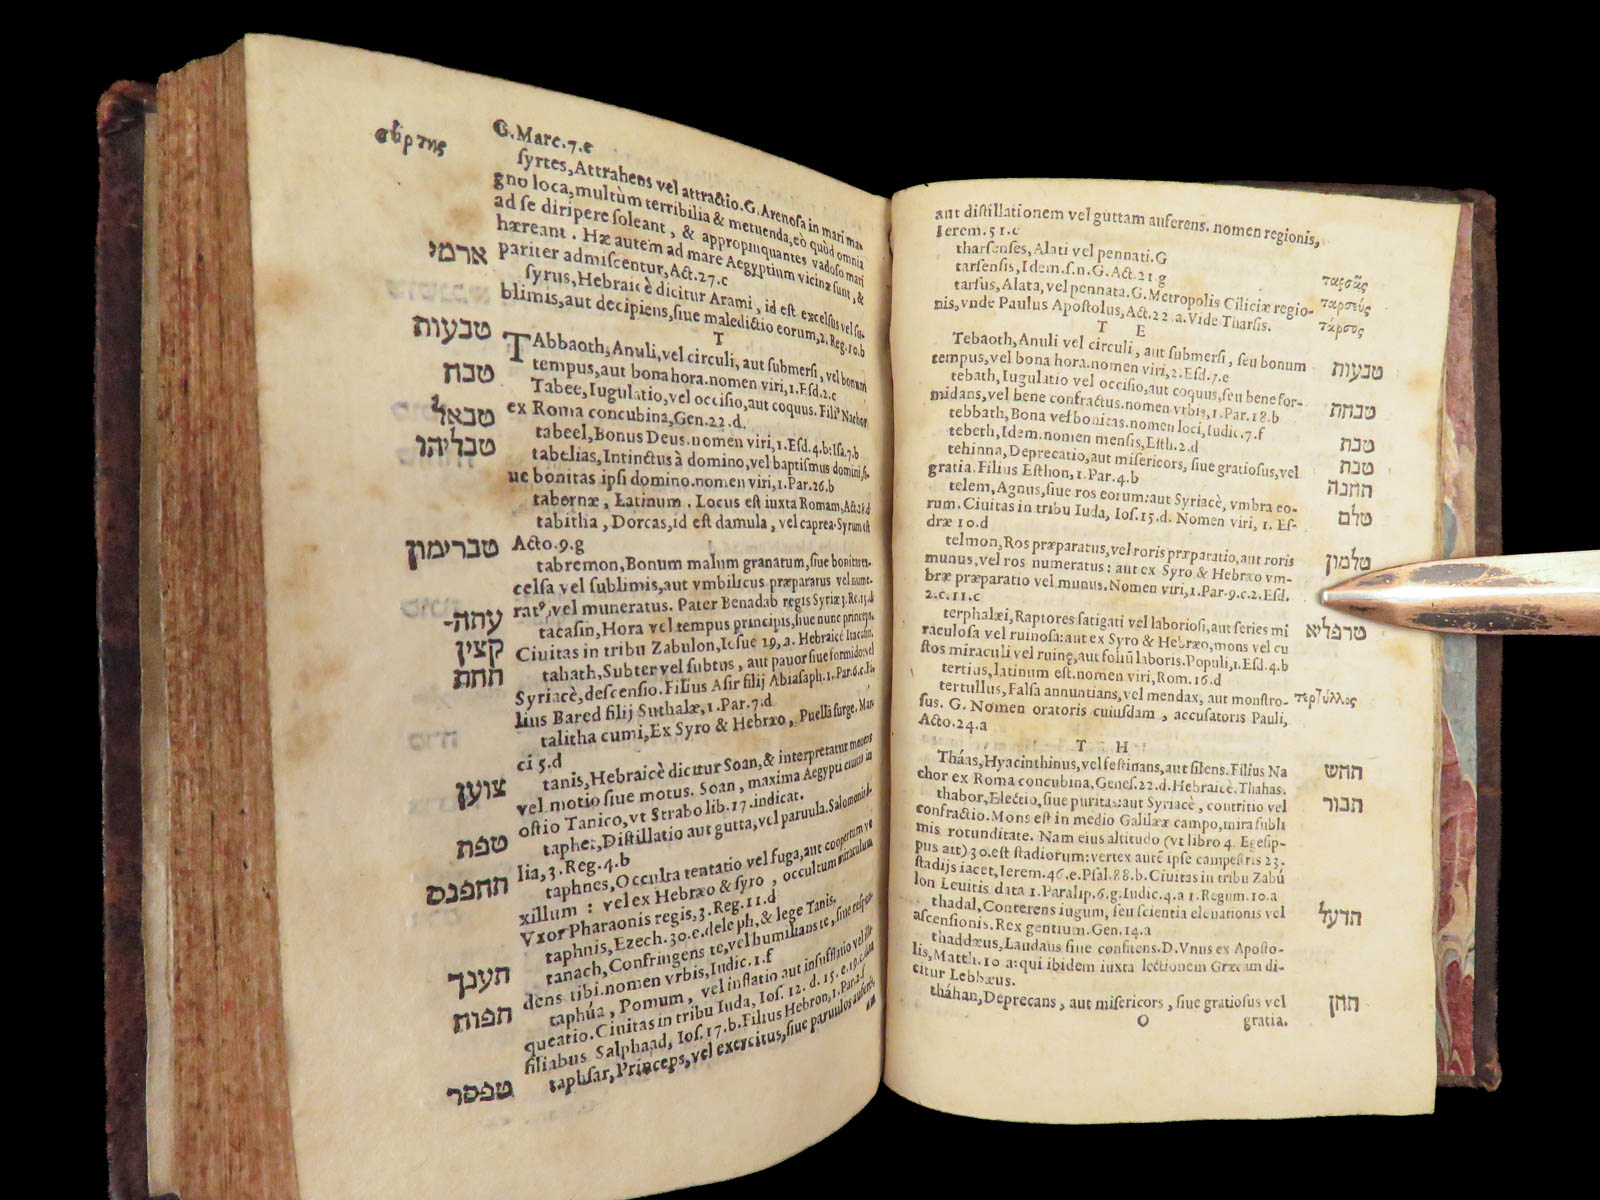 G.Marc.7.e
σύρτης
syrtes,Attrahens vel attractio.G.Arenosa in mari ma-
gno loca,multùm terribilia & metuenda,eò quòd omnia
ad se diripere soleant, & appropinquantes vadoso mari
hæreant. Hæ autem ad mare Aegyptium vicinæ sunt, &
pariter admiscentur,Act.27.c
ארמי
syrus,Hebraicè dicitur Arami, id est excelsus vel su-
blimis,aut decipiens,siue maledictio eorum,2.Reg.10.b
T
טבעות
TAbbaoth,Anuli,vel circuli, aut submersi, vel bonum
tempus,aut bona hora.nomen viri,1.Esd.2.c
טבח
Tabee,Iugulatio,vel occisio,aut coquus. Fili⁹ Nachor
ex Roma concubina,Gen.22.d.
טבאל
tabeel,Bonus Deus.nomen viri,1.Esd.4.b:Isa.7.b
טבליהו
tabelias,Intinctus à domino,vel baptismus domini,si-
ue bonitas ipsi domino.nomen viri,1.Par.26.b
tabernæ, Latinum. Locus est iuxta Romam,Act.28.d
tabitha, Dorcas,id est damula, vel caprea.Syrum est
Acto.9.g
טברימון
tabremon,Bonum malum granatum,siue bonitus ex-
celsa vel sublimis,aut vmbilicus præparatus vel nume-
rat⁹,vel muneratus. Pater Benadab regis Syriæ 3.Re.15.d
עתה־
קצין
tacasin,Hora vel tempus principis,siue nunc princeps.
Ciuitas in tribu Zabulon,Iosue 19,a. Hebraicè Itacasin.
תחת
tahath,Subter vel subtus, aut pauor siue formido:vel
Syriacè,descensio.Filius Asir filij Abiasaph,1.Par.6.c.Fi-
lius Bared filij Suthalæ,1.Par.7.d
talitha cumi,Ex Syro & Hebræo, Puella surge. Mar-
ci 5.d
צוען
tanis,Hebraicè dicitur Soan,& interpretatur mouens
vel motio siue motus. Soan, maxima Aegypti ciuitas in
ostio Tanico,vt Strabo lib.17.indicat.
טפת
taphet,Distillatio aut gutta,vel paruula.Salomonis fi-
lia,3.Reg.4.b
תחפנס
taphnes,Occulta tentatio vel fuga,aut coopertum ve
xillum : vel ex Hebræo & syro, occultum miraculum
Vxor Pharaonis regis,3.Reg.11.d
taphnis,Ezech.30.e.dele ph,& lege Tanis.
תענך
tanach,Confringens te,vel humilians te, siue respon-
dens tibi.nomen vrbis,Iudic.1.f
תפוח
taphúa, Pomum, vel inflatio aut insufflatio vel illa-
queatio.Ciuitas in tribu Iuda, Ios.12.d.15.e.19.c.data
filiabus Salphaad, Ios.17.b.Filius Hebron,1.Par.2.f
טפסר
taphsar,Princeps,vel exercitus,siue paruulos auferēs,
an
aut distillationem vel guttam auferens. nomen regionis,
Ierem.51.c
tharsenses,Alati vel pennati.G
tarsensis,Idem.s.n.G.Act.21.g
ταρσεὺς
tarsus,Alata,vel pennata.G.Metropolis Ciliciæ regio-
nis,vnde Paulus Apostolus,Act.22.a.Vide Tharsis.
τάρσος
T E
טבעות
Tebaoth,Anuli vel circuli, aut submersi, seu bonum
tempus,vel bona hora.nomen viri,2.Esd.7.e
טבחת
tebath,Iugulatio vel occisio,aut coquus,seu bene for-
midans,vel bene confractus.nomen vrbis,1.Par.18.b
טבת
tebbath,Bona vel bonitas.nomen loci,Iudic.7.f
טבת
tebeth,Idem.nomen mensis,Esth.2.d
תחנה
tehinna,Deprecatio,aut misericors, siue gratiosus,vel
gratia.Filius Esthon,1.Par.4.b
טלם
telem,Agnus,siue ros eorum:aut Syriacè, vmbra eo-
rum.Ciuitas in tribu Iuda, Ios.15.d. Nomen viri, 1. Es-
dræ 10.d
טלמון
telmon,Ros præparatus,vel roris præparatio,aut roris
munus,vel ros numeratus : aut ex Syro & Hebræo vm-
bræ præparatio vel munus.Nomen viri,1.Par.9.c.2.Esd.
2.c.11.c
טרפליא
terphalæi,Raptores fatigati vel laboriosi,aut series mi
raculosa vel ruinosa:aut ex Syro & Hebræo,mons vel cu
stos miraculi vel ruinę,aut foliū laboris.Populi,1.Esd.4.b
tertius,latinum est.nomen viri,Rom.16.d
τερτύλλος
tertullus,Falsa annuntians,vel mendax, aut monstro-
sus. G. Nomen oratoris cuiusdam, accusatoris Pauli,
Acto.24.a
T H
תחש
Tháas,Hyacinthinus,vel festinans,aut silens. Filius Na
chor ex Roma concubina.Genes.22.d.Hebraicè.Thahas.
תבור
thabor,Electio,siue puritas:aut Syriacè, contritio vel
confractio.Mons est in medio Galilææ campo,mira subli
mis rotunditate. Nam eius altitudo (vt libro 4. Egesip-
pus ait) 30.est stadiorum:vertex autē ipse campestris 23.
stadijs iacet,Ierem.46.e.Psal.88.b.Ciuitas in tribu Zabú
lon Leuitis data 1.Paralip.6.g.Iudic.4.a 1.Regum.10.a
תדעל
thadal,Conterens iugum, seu scientia eleuationis vel
ascensionis. Rex gentium.Gen.14.a
thaddæus,Laudans siue confitens.D.Vnus ex Aposto-
lis,Matth.10 a:qui ibidem iuxta lectionem Græcam di-
citur Lebbæus.
תחן
tháhan,Deprecans, aut misericors, siue gratiosus vel
O
gratia.